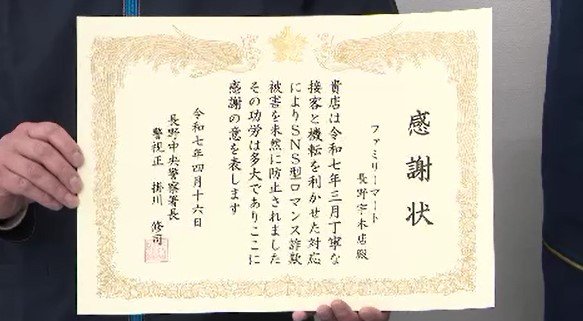 感謝状
ファミリーマート
長野 木店殿
貴店は令和七年三月丁寧な
接客と機転を利かせた対応
によりSNS型ロマンス詐欺
被害を未然に防止されました
その功労は多大でありここに
感謝の意を表します
令和七年四月十六日
長野中央警察署長
警視正 掛川 修司